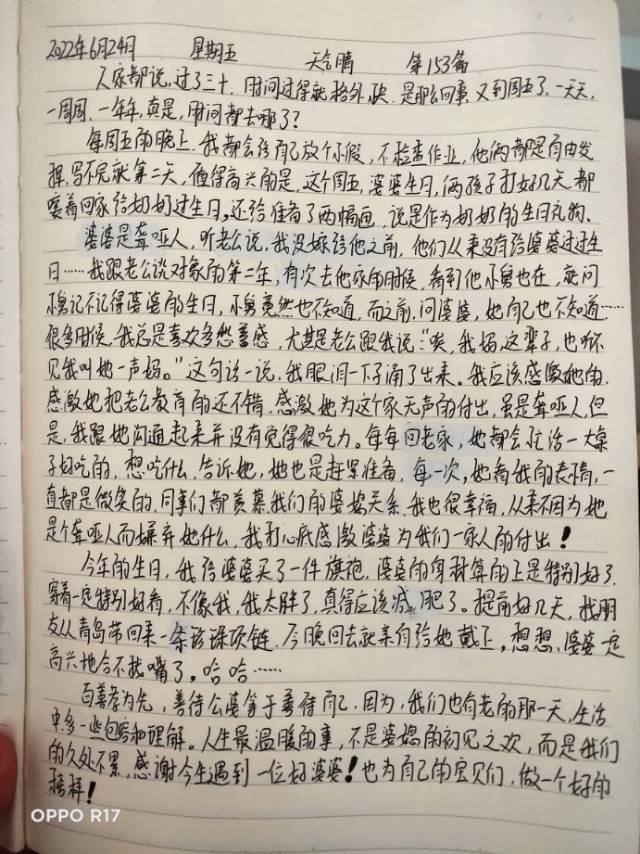 2022年6月24日 星期五 天气晴 第153篇
人家都说,过了三十,时间过得就格外快,是那么回事,又到周五了,一天天,
一周周,一年年,真是,时间都去哪了?
每周五的晚上,我都会给自己放个小假,不检查作业,他俩都是自由发
挥,写不完就第二天,值得高兴的是,这个周五,婆婆生日,俩孩子打好几天都
嚷着回家给奶奶过生日,还给准备了两幅画,说是作为奶奶的生日礼物、
婆婆是聋哑人,听老公说,我没嫁给他之前,他们从来没有给婆婆过过生
日……我跟老公谈对象的第二年,有次去他家的时候,看到他小舅也在,就问
小舅记不记得婆婆的生日,小舅竟然也不知道,而之前,问婆婆,她自己也不知道……
很多时候,我总是喜欢多愁善感,尤其是老公跟我说:“唉,我妈,这辈子,也听不
见我叫她一声妈。”这句话一说,我眼泪一下子涌了出来。我应该感激她的,
感激她把老公教育的还不错,感激她为这个家无声的付出,虽是聋哑人,但
是,我跟她沟通起来并没有觉得很吃力。每每回老家,她都会忙活一大桌
子好吃的,想吃什么,告诉她,她也是赶紧准备,每一次,她看我的表情,一
直都是微笑的,同事们都羡慕我们的婆媳关系,我也很幸福,从来不因为她
是个聋哑人而嫌弃她什么,我打心底感激婆婆为我们一家人的付出!
今年的生日,我给婆婆买了一件旗袍,婆婆的身材算的上是特别好了,
穿着一定特别好看,不像我,我太胖了,真得应该减肥了。提前好几天,我朋
友从青岛带回来一条珍珠项链,今晚回去就亲自给她戴上,想想,婆婆一定
高兴地合不拢嘴了,哈哈……
百善孝为先,善待公婆等于善待自己,因为,我们也有老的那一天,生活
中,多一些包容和理解。人生最温暖的事,不是婆媳的初见之欢,而是我们
的久处不累,感谢今生遇到一位好婆婆!也为自己的宝贝们,做一个好的
榜样!
OPPO R17